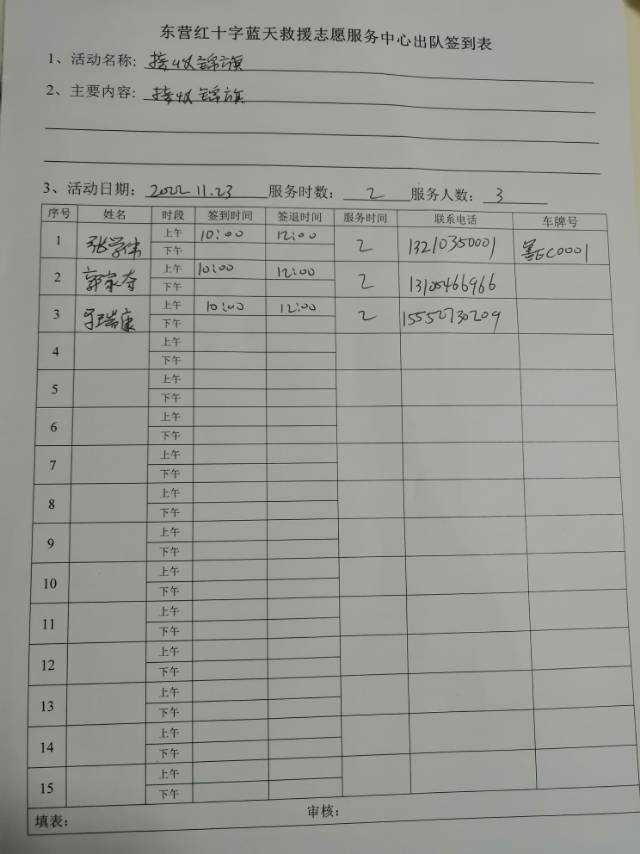 东营红十字蓝天救援志愿服务中心出队签到表
1、活动名称：接收锦旗
2、主要内容：接收锦旗
3、活动日期：2022 11.23 服务时数：2 服务人数：3
序号 姓名 时段 签到时间 签退时间 服务时间 联系电话 车牌号
1 张学伟 上午 10:00 12:00 2 13210350001 EC0001
下午
2 郭 上午 10:00 12:00 2 13105466966
下午
3 康 上午 10:00 12:00 2 15552730209
下午
4 上午
下午
5 上午
下午
6 上午
下午
7 上午
下午
8 上午
下午
9 上午
下午
10 上午
下午
11 上午
下午
12 上午
下午
13 上午
下午
14 上午
下午
15 上午
下午
填表： 审核：